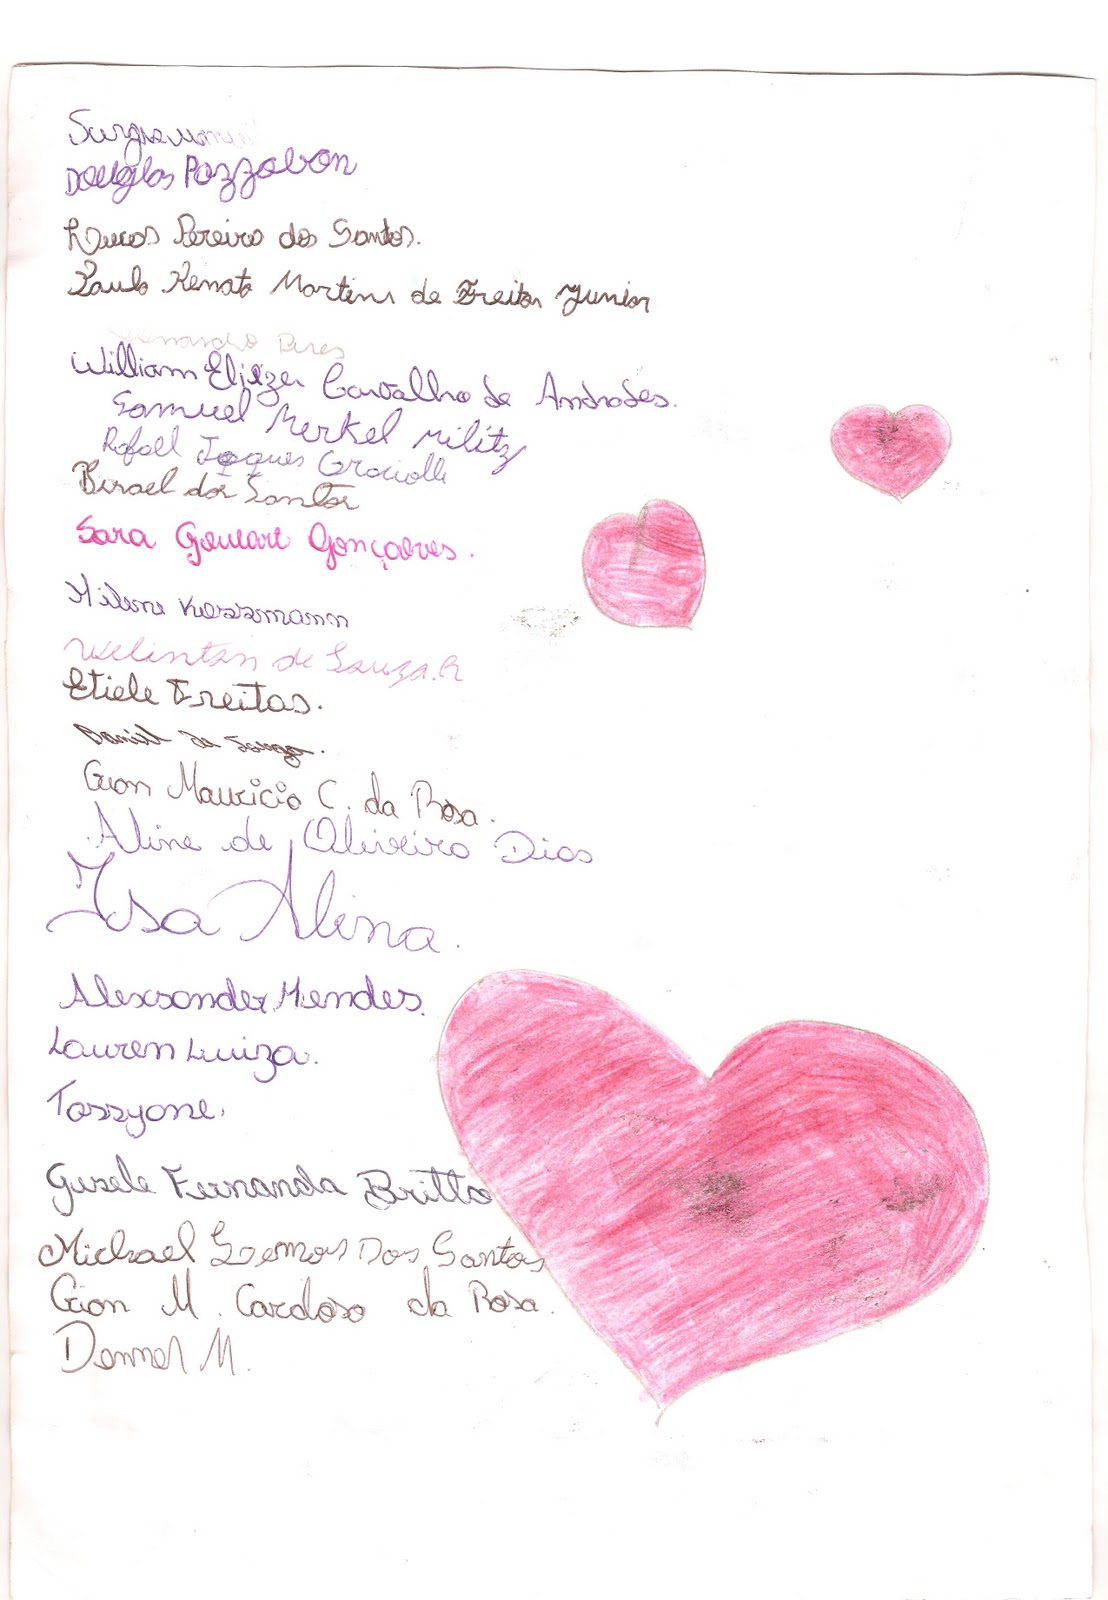 Douglas Pozzobon
Lucas Pereira dos Santos.
Paulo Renato Martins de Freitas Junior
Pires
William Eliézer Carvalho de Andrades.
Samuel Merkel Militz
Rafael Jaques Graciolli
dos Santos
Sara Goulart Gonçalves.
Milene Kessmann
Welinton de Souza.R
Etiele Freitas.
Daniel de Souza.
Gion Mauricio C. da Rosa.
Aline de Oliveira Dias
Isa Alina.
Alexsander Mendes.
Lauren Luiza.
Tassyone.
Gisele Fernanda Britto
Michael Lemos Dos Santos
Gion M. Cardoso da Rosa.
M.